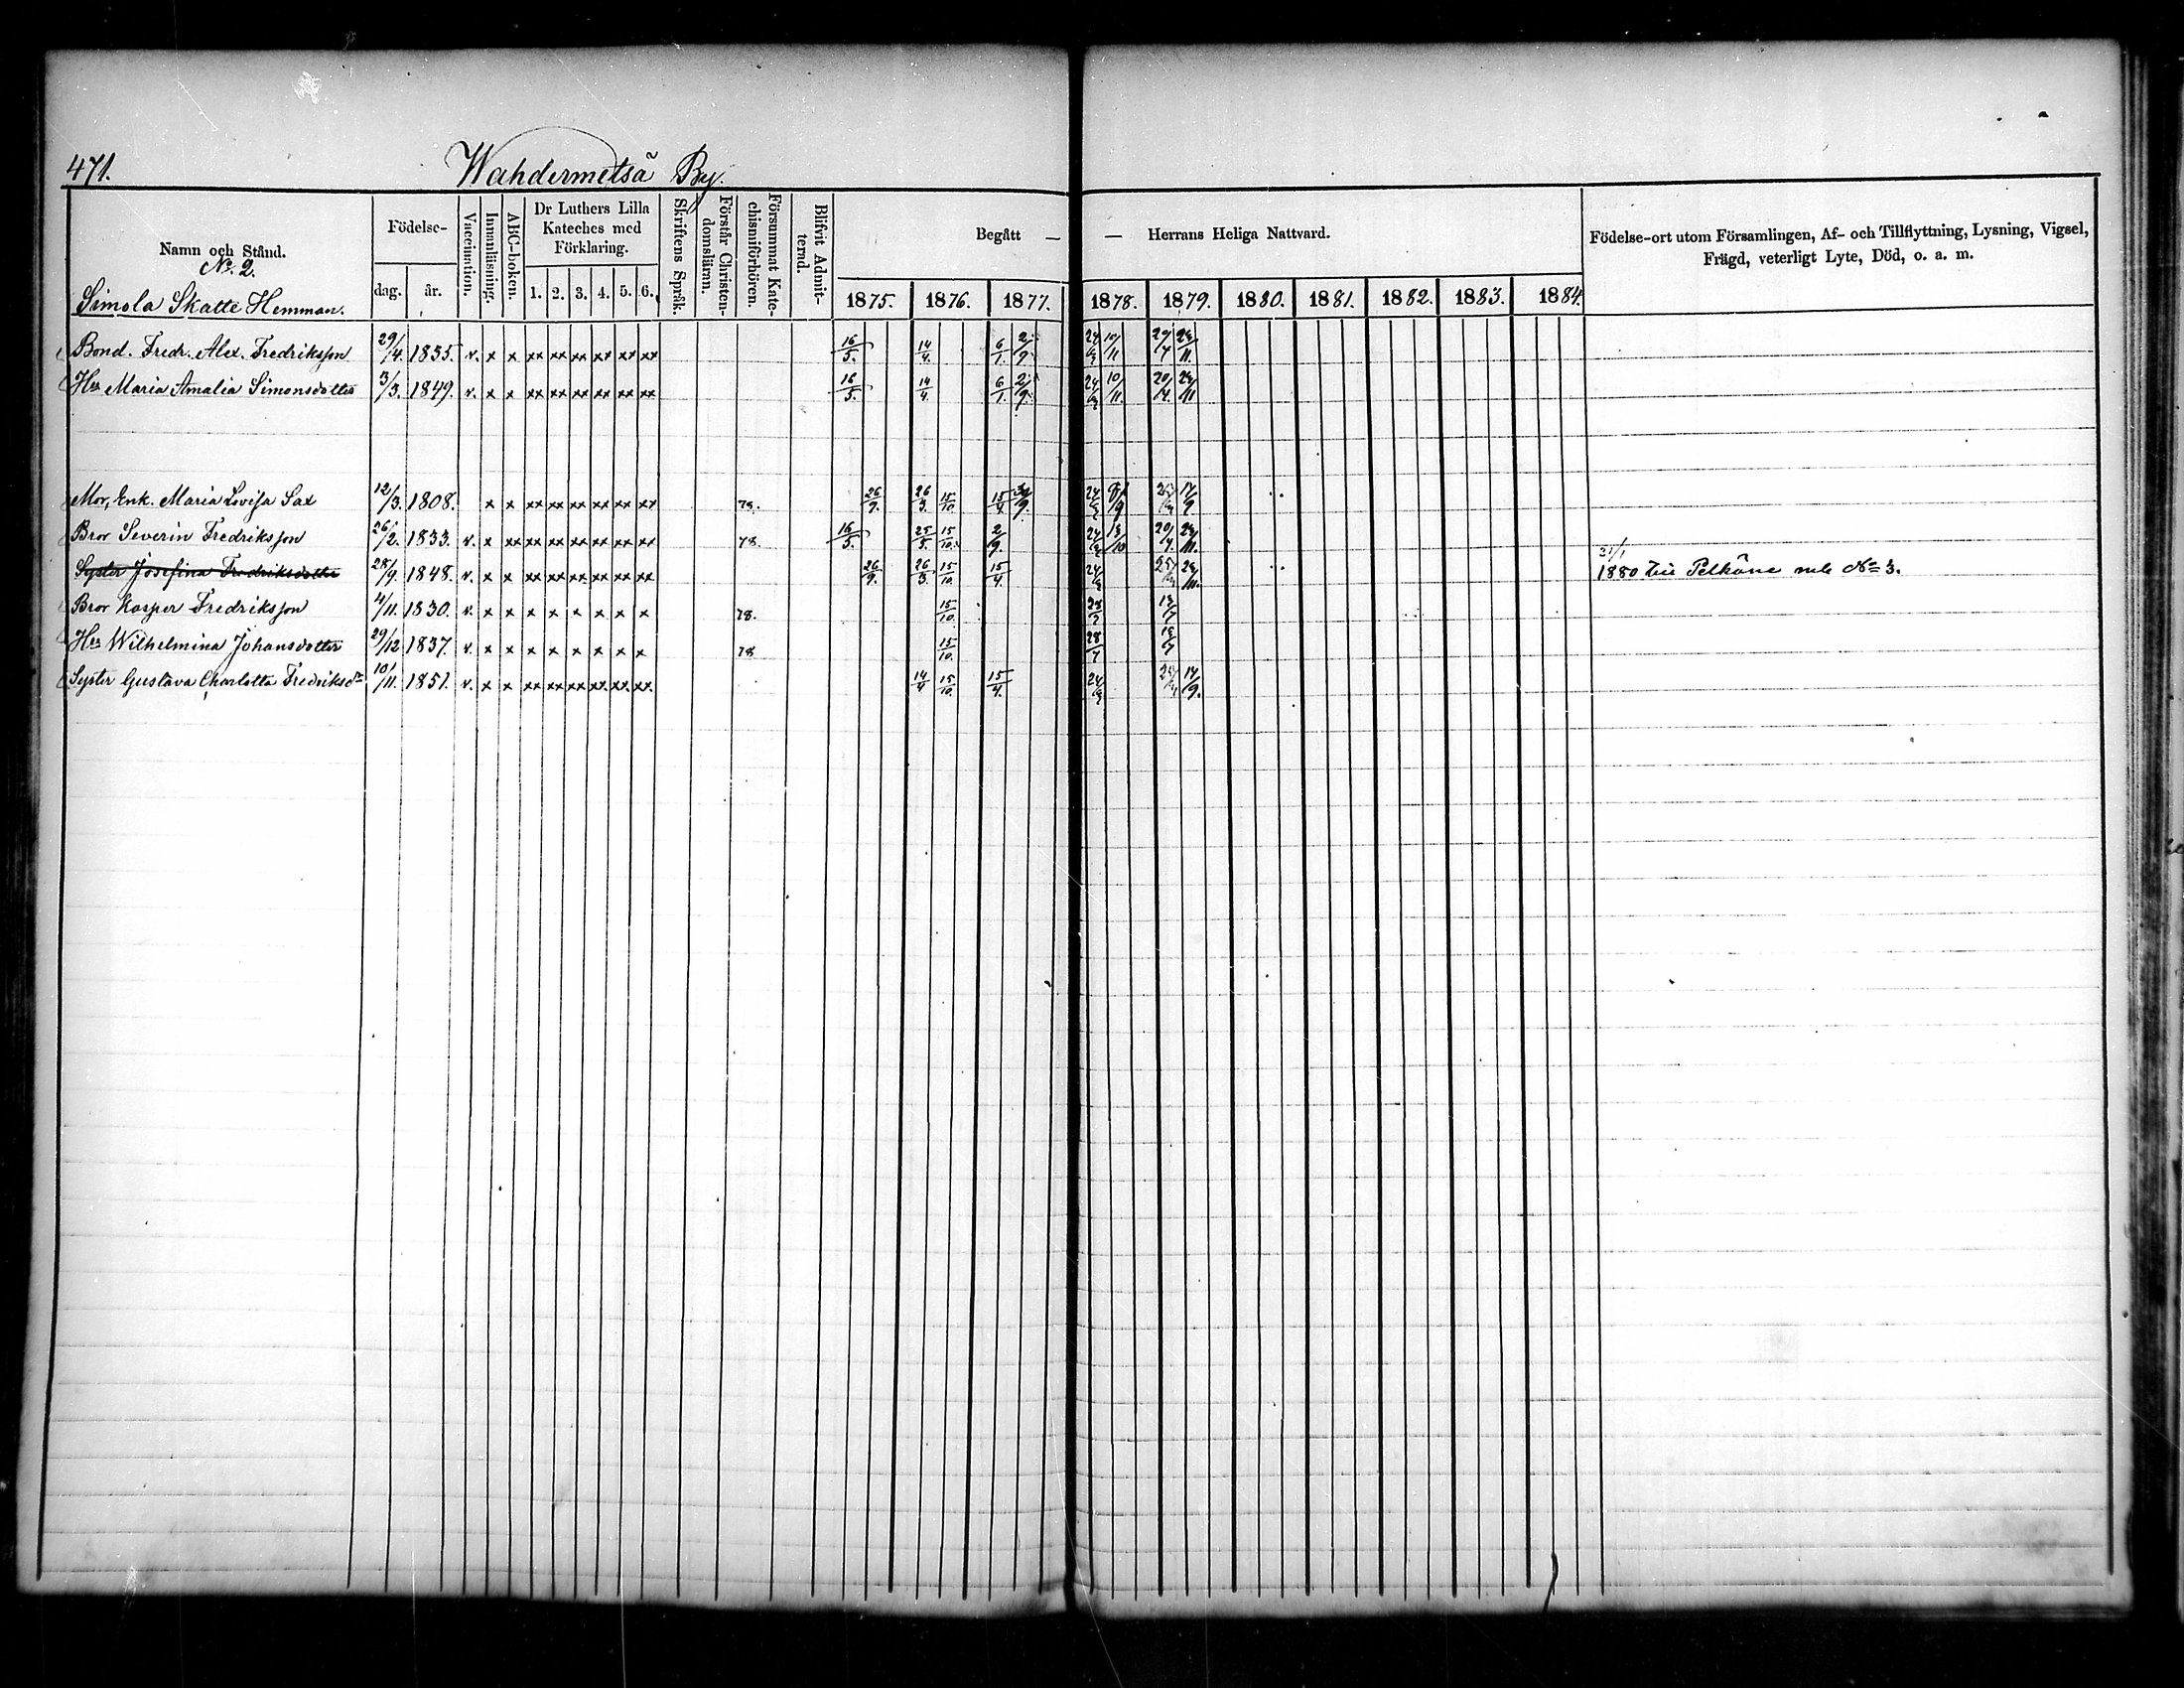 471.
Wahdermetsä By.
Namn och Stånd.
No 2.
Simola Skatte Hemman.
Födelse-
dag. år.
Vaccination.
Innanläsning.
ABC-boken.
Dr Luthers Lilla
Kateches med
Förklaring.
1. 2. 3. 4. 5. 6.
Skriftens Språk.
Förstår Christen-
domsläran.
Försummat Kate-
chismiförhören.
Blifvit Admit-
terad.
Begått — — Herrans Heliga Nattvard.
1875. 1876. 1877. 1878. 1879. 1880. 1881. 1882. 1883. 1884.
Födelse-ort utom Församlingen, Af- och Tillflyttning, Lysning, Vigsel,
Frägd, veterligt Lyte, Död, o. a. m.
Bond. Fredr. Alex. Fredriksson 29/4. 1835. v. x x xx xx xx xx xx xx 16/5. 14/4. 6/1. 2/9. 10/11
Hu Maria Amalia Simonsdotter 3/3. 1849. v. x x xx xx xx xx xx xx 16/5. 14/4. 6/1. 2/9. 10/11.
Mor, Enk. Maria Lovisa Sax 12/3. 1808. x x xx xx xx xx xx xx 79. 26/9. 26/3. 15/10 15/4
Bror Severin Fredriksson 26/2. 1833. v. x xx xx xx xx xx xx xx 78. 16/5. 25/5. 15/10. 2/9.
Syster Josefina Fredriksdotter 28/9. 1848. v. x x xx xx xx xx xx xx 26/9. 26/3 15/10. 15/4. 21/1 1880 till Pelkäne mb No 3.
Bror Kasper Fredriksson 4/11. 1830. v. x x x x x x x x 78. 15/10.
Hu Wilhelmina Johansdotter 29/12 1837. v. x x x x x x x x 78 15/10. 28/7
Syster Gustava Charlotta Fredriksdr 10/11. 1851. v. x x xx xx xx xx xx xx 14/4 15/10. 15/4.